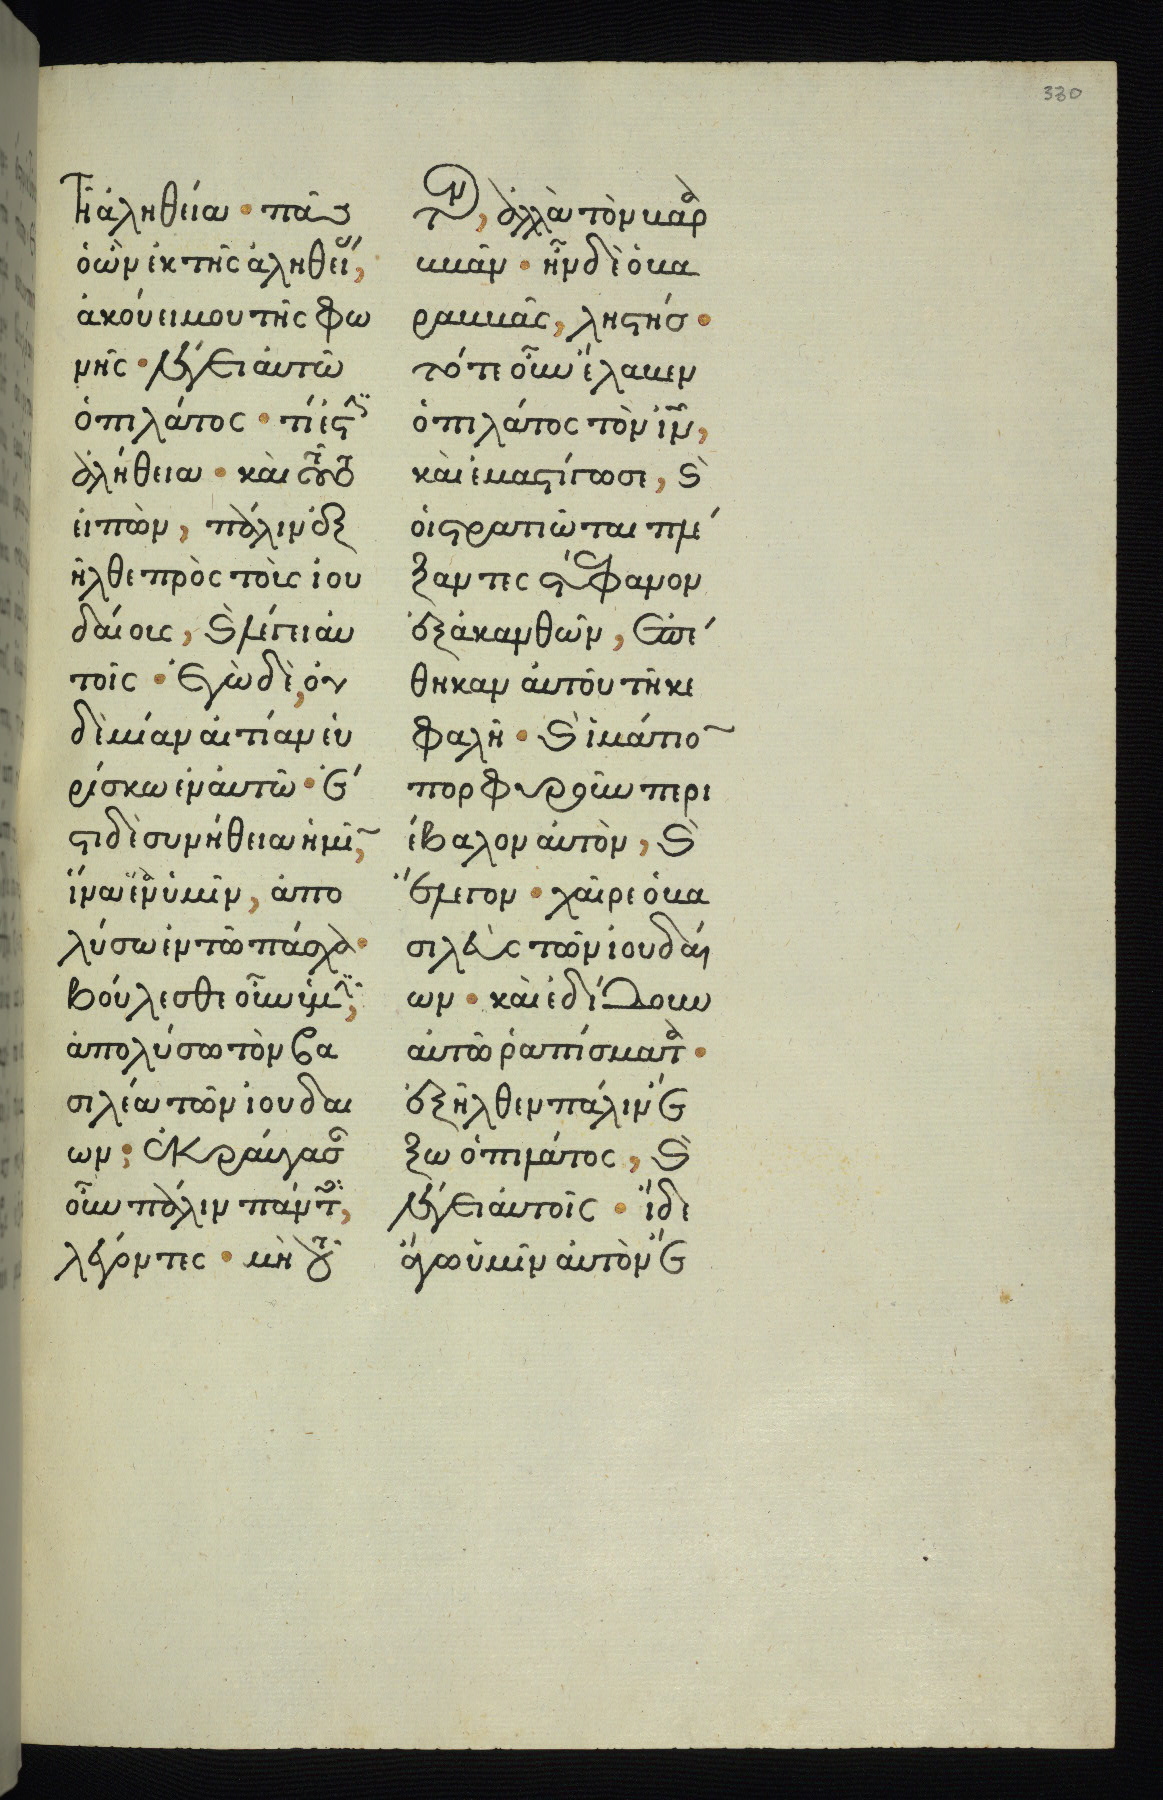 330
τῆ ἀληθεία · πᾶς
ὁ ὢν ἐκ τῆς ἀληθείας,
ἀκούει μου τῆς φω
νῆς · λέγει αὐτῶ
ὁ πιλάτος · τί ἐστιν
ἀλήθεια · καὶ τοῦτο
εἰπὼν, πάλιν ἐξ
ῆλθε πρὸς τοὺς ἰου
δαίους, καὶ λέγει αὐ
τοῖς · ἐγὼ δὲ, οὐ
δεμίαν αἰτίαν εὑ
ρίσκω ἐν αὐτῶ · ἔ
στι δὲ συνήθεια ἡμῖν,
ἵνα ἕνα ὑμῖν, ἀπο
λύσω ἐν τῶ πάσχα ·
βούλεσθε οὖν ὑμῖν,
ἀπολύσω τὸν βα
σιλέα τῶν ἰουδαί
ων; ἐκραύγασαν
οὖν πάλιν πάντες,
λέγοντες · μὴ τοῦ
τον, ἀλλὰ τὸν βαρ
αββᾶν · ἦν δὲ ὁ βα
ραββᾶς, ληστής ·
τότε οὖν ἔλαβεν
ὁ πιλάτος τὸν ἰν,
καὶ ἐμαστίγωσε, καὶ
οἱ στρατιῶται πλέ
ξαντες στέφανον
ἐξ ἀκανθῶν, ἐπέ
θηκαν αὐτοῦ τῆ κε
φαλῆ · καὶ ἱμάτιον
πορφυροῦν περι
έβαλον αὐτὸν, καὶ
ἔλεγον · χαῖρε ὁ βα
σιλεὺς τῶν ἰουδαί
ων · καὶ ἐδίδουν
αὐτῶ ραπίσματα ·
ἐξῆλθεν πάλιν ἔ
ξω ὁ πιλάτος, καὶ
λέγει αὐτοῖς · ἴδε
ἄγω ὑμῖν αὐτὸν ἔ